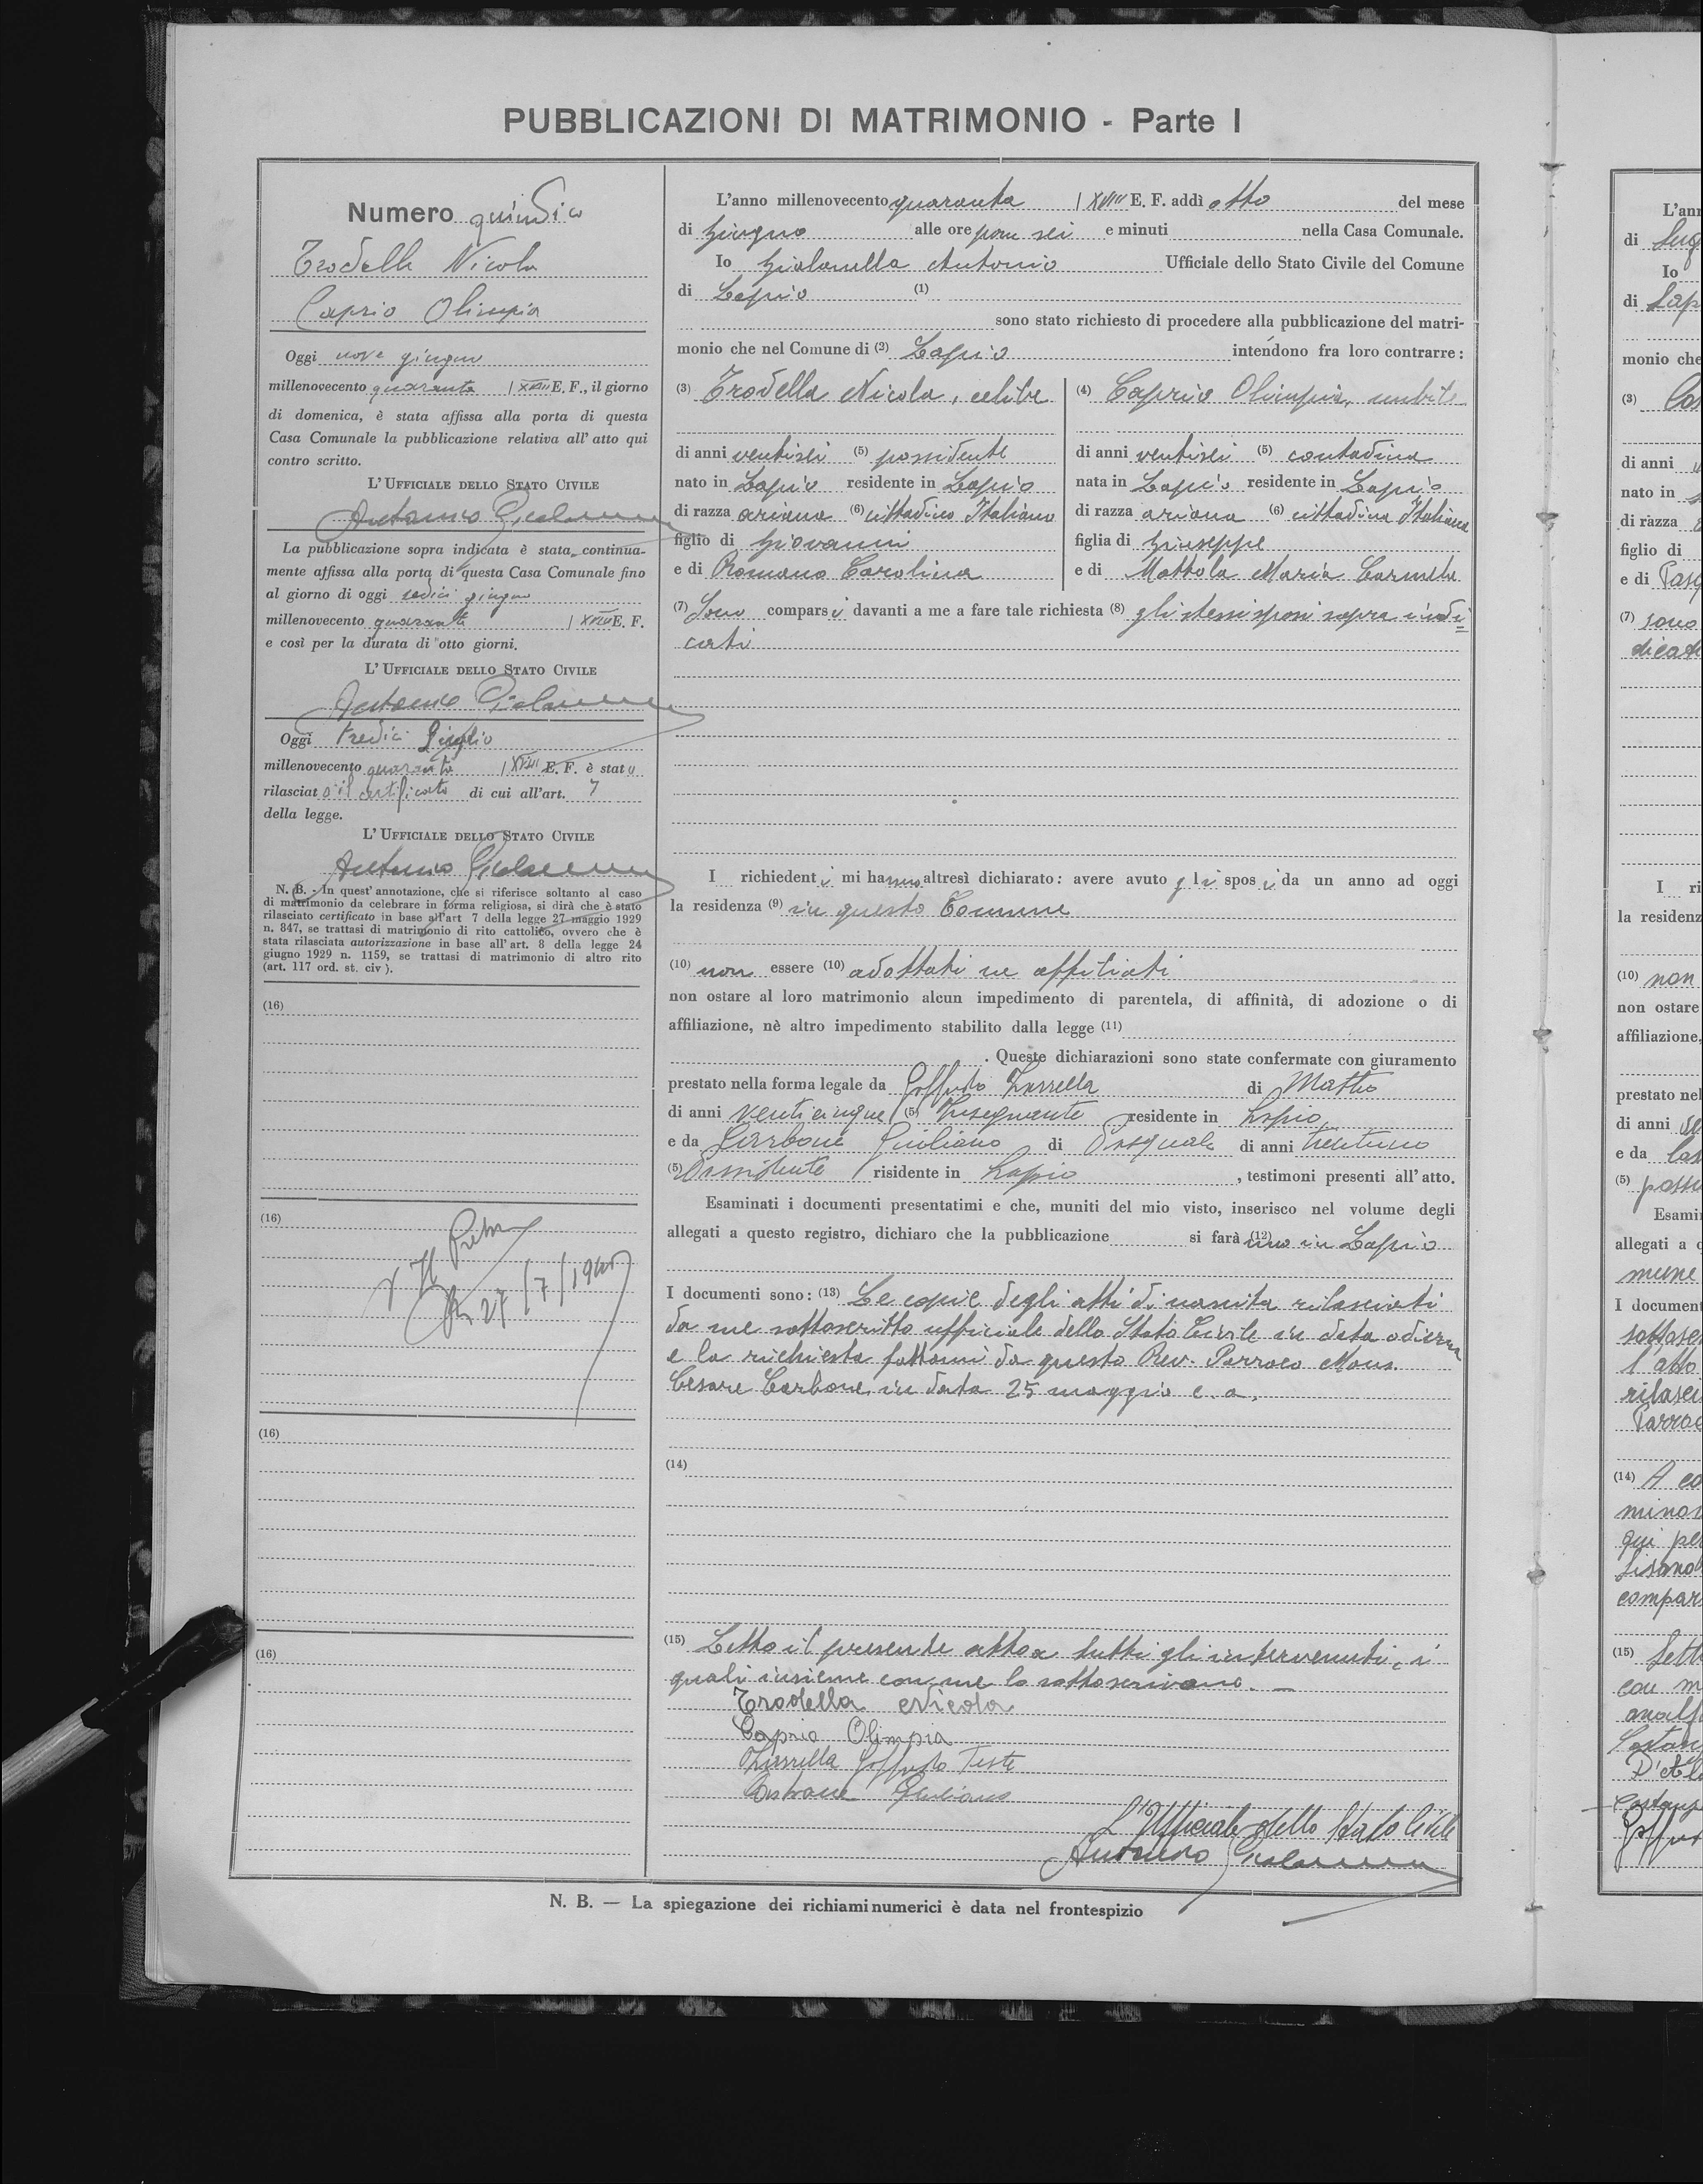 PUBBLICAZIONI DI MATRIMONIO - Parte I
Numero quindici
Trodella Nicola
Caprio Olimpia
Oggi nove giugno
millenovecento quaranta / XVIII E. F., il giorno
di domenica, è stata affissa alla porta di questa
Casa Comunale la pubblicazione relativa all' atto qui
contro scritto.
L' UFFICIALE DELLO STATO CIVILE
Antonio Gialanella
La pubblicazione sopra indicata è stata continua-
mente affissa alla porta di questa Casa Comunale fino
al giorno di oggi sedici giugno
millenovecento quaranta / XVIII E. F.
e così per la durata di otto giorni.
L' UFFICIALE DELLO STATO CIVILE
Antonio Gialanella
Oggi tredici Luglio
millenovecento quaranta / XVIII E. F. è stato
rilasciato il certificato di cui all'art. 7
della legge.
L' UFFICIALE DELLO STATO CIVILE
Antonio Gialanella
N. B. - In quest' annotazione, che si riferisce soltanto al caso
di matrimonio da celebrare in forma religiosa, si dirà che è stato
rilasciato certificato in base all'art 7 della legge 27 maggio 1929
n. 847, se trattasi di matrimonio di rito cattolico, ovvero che è
stata rilasciata autorizzazione in base all' art. 8 della legge 24
giugno 1929 n. 1159, se trattasi di matrimonio di altro rito
(art. 117 ord. st. civ ).
(16)
(16)
27/7/1940
(16)
(16)
L'anno millenovecento quaranta / XVIII E. F. addì otto del mese
di Giugno alle ore pom sei e minuti nella Casa Comunale.
Io Gialanella Antonio Ufficiale dello Stato Civile del Comune
di Lapio (1)
sono stato richiesto di procedere alla pubblicazione del matri-
monio che nel Comune di (2) Lapio intendono fra loro contrarre :
(3) Trodella Nicola, celibe
di anni ventisei (5) possidente
nato in Lapio residente in Lapio
di razza ariana (6) cittadino Italiano
figlio di Giovanni
e di Romano Carolina
(4) Caprio Olimpia, nubile
di anni ventisei (5) contadina
nata in Lapio residente in Lapio
di razza ariana (6) cittadina Italiana
figlia di Giuseppe
e di Mottola Maria Carmela
(7) Sono comparsi davanti a me a fare tale richiesta (8) gli stessi sposi sopra indi=
cati
I richiedenti mi hanno altresì dichiarato : avere avuto gli sposi da un anno ad oggi
la residenza (9) in questo Comune
(10) non essere (10) adottati ne affiliati
non ostare al loro matrimonio alcun impedimento di parentela, di affinità, di adozione o di
affiliazione, nè altro impedimento stabilito dalla legge (11)
. Queste dichiarazioni sono state confermate con giuramento
prestato nella forma legale da Goffredo Zarrella di Matteo
di anni venticinque (5) Insegnante residente in Lapio
e da Carbone Giuliano di Pasquale di anni trentuno
(5) Possidente risidente in Lapio , testimoni presenti all' atto.
Esaminati i documenti presentatimi e che, muniti del mio visto, inserisco nel volume degli
allegati a questo registro, dichiaro che la pubblicazione si farà (12) in Lapio
I documenti sono : (13) Le copie degli atti di nascita rilasciati
da me sottoscritto ufficiale dello Stato Civile in data odierna
e la richiesta fattami da questo Rev. Parroco Mons.
Cesare Carbone in data 25 maggio c. a.
(14)
(15) Letto il presente atto a tutti gli intervenuti, i
quali insieme con me lo sottoscrivono. —
Trodella Nicola
Caprio Olimpia
Zarrella Goffredo Teste
Carbone Giuliano
L'Ufficiale dello Stato Civile
Antonio Gialanella
N. B. — La spiegazione dei richiami numerici è data nel frontespizio
L'an
di Lug
Io
di Lap
monio che
(3)
di anni
nato in
di razza
figlio di
e di Pasq
(7) sono
dicat
I ri
la residenz
(10) non
non ostare
affiliazione,
prestato nel
di anni
e da
(5) posse
Esami
allegati a q
mune
I document
sottose
l'atto
rilasci
Parroc
(14) A co
minor
qui per
compar
(15) Lett
con m
analf
Goffred